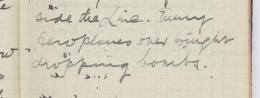 side the Line. Many
aeroplanes over at night
dropping bombs.